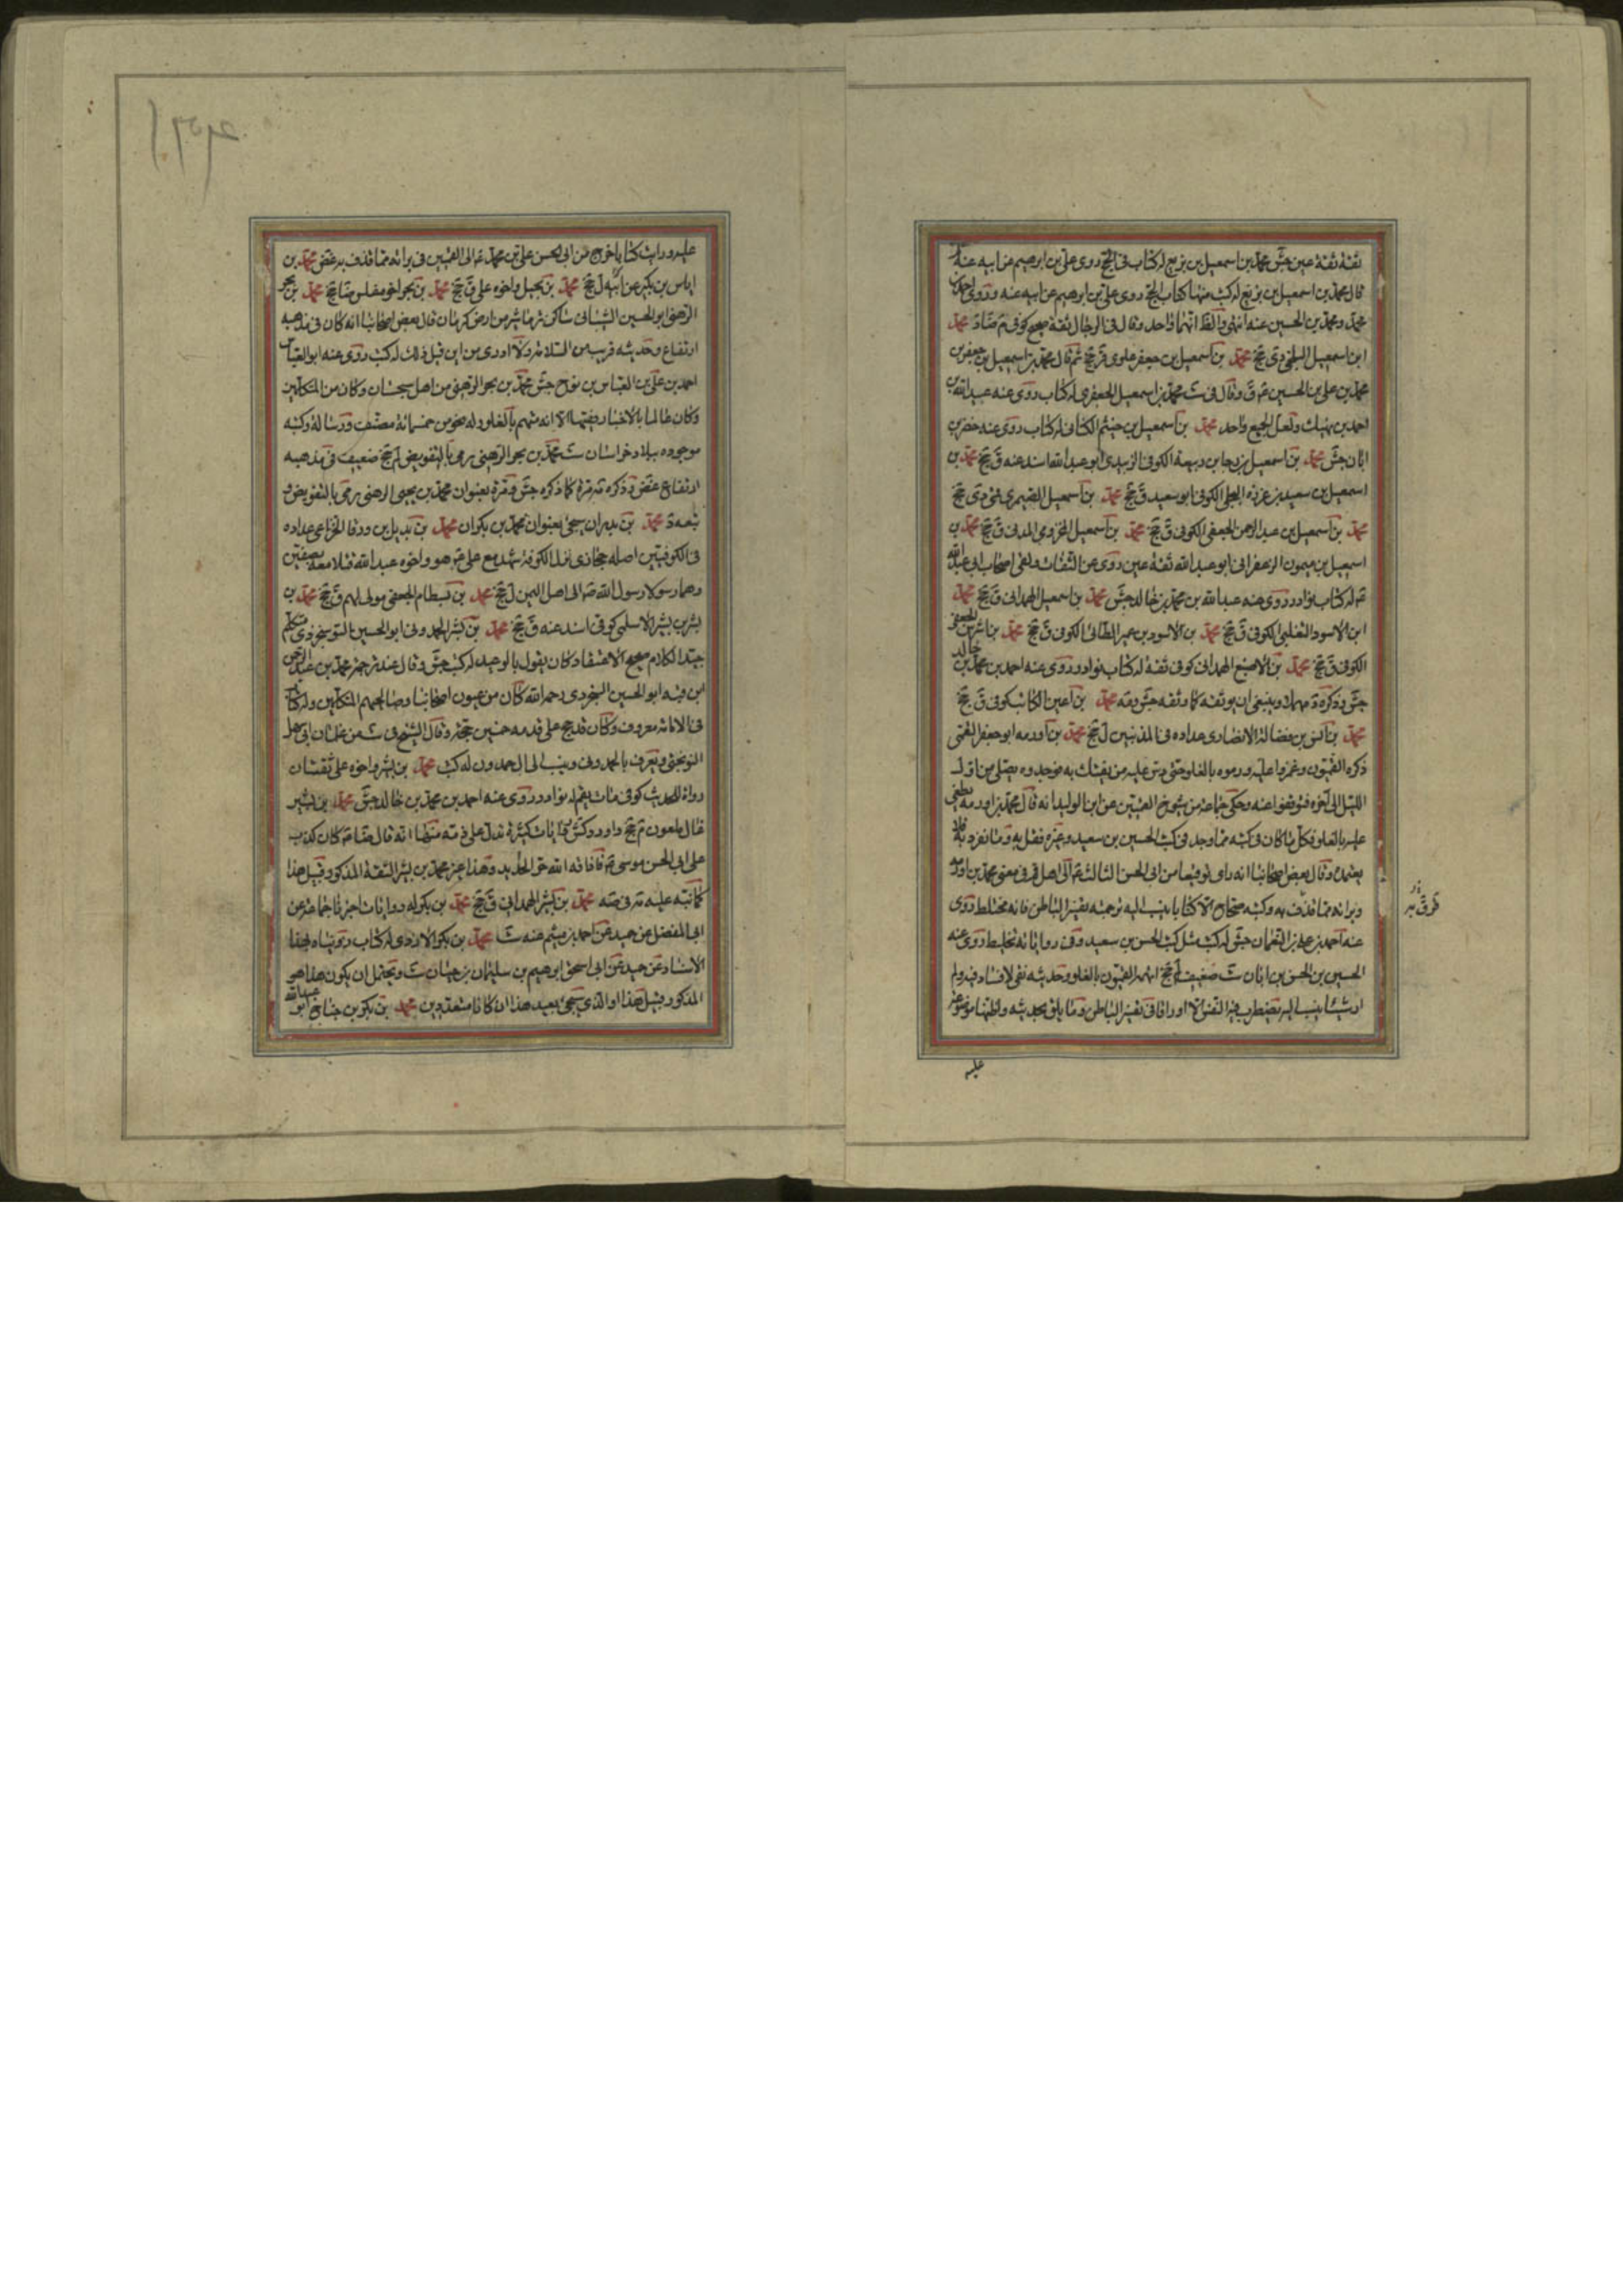 ثقة ثقة عين جش محمد بن اسمعيل بن بزيع له كتاب في الحج روى علي بن ابرهيم عن ابيه عنه
قال محمد بن اسمعيل بن بزيع له كتب منها كتاب الحج روى علي بن ابرهيم عن ابيه عنه وروى احمد بن
محمد ومحمد بن الحسين عنه انتهى والظ انهما واحد وقال في الرجال ثقة صحيح كوفي م ضا د محمد
ابن اسمعيل البلخي دي جخ محمد بن اسمعيل بن جعفر علوي قر جخ ثم قال محمد بن اسمعيل بن جعفر بن
محمد بن علي بن الحسين ع ق وقال في ست محمد بن اسمعيل الجعفري له كتاب روى عنه عبيد الله بن
احمد بن نهيك ولعل الجميع واحد محمد بن اسمعيل بن خيثم الكناني له كتاب روى عنه خضر بن
ابان جش محمد بن اسمعيل بن رجا بن ربيعة الكوفي الزبيدي ابو عبد الله اسند عنه ق جخ محمد بن
اسمعيل بن سعيد بن عزرة البجلي الكوفي ابو سعيد ق جخ محمد بن اسمعيل الصيمري قمي دي جخ
محمد بن اسمعيل بن عبد الرحمن الجعفي الكوفي ق جخ محمد بن اسمعيل المخزومي المدني ق جخ محمد بن
اسمعيل بن ميمون الزعفراني ابو عبد الله ثقة عين روى عن الثقات ولقى اصحاب ابي عبد الله
ع له كتاب نوادر روى عنه عبد الله بن محمد بن خالد جش محمد بن اسمعيل الهمداني ق جخ محمد
ابن الاسود التغلبي الكوفي ق جخ محمد بن الاسود بن عمير الطائي الكوفي ق جخ محمد بن اشرس الجعفي
الكوفي ق جخ محمد بن الاصبغ الهمداني كوفي ثقة له كتاب نوادر روى عنه احمد بن محمد بن خالد
جش وذكره د مهملا وينبغي ان يوثقه كما وثقه جش ومه محمد بن اعين الكاتب كوفي ق جخ
محمد بن انس بن فضالة الانصاري عداده في المدنيين ل جخ محمد بن اورمه ابو جعفر القمي
ذكره القميون وغمزوا عليه ورموه بالغلو حتى دس عليه من يفتك به فوجدوه يصلي من اول
الليل الى آخره فتوقفوا عنه وحكى جماعة من شيوخ القميين عن ابن الوليد انه قال محمد بن اورمه طعن
عليه بالغلو فكل ما كان في كتبه مما وجد في كتب الحسين بن سعيد وغيره فقل به وما تفرد به فلا
يعتمده وقال بعض اصحابنا انه راى توقيعا من ابي الحسن الثالث ع الى اهل قم في معنى محمد بن اورمه
وبرائه مما قذف به وكتبه صحاح الا كتابا ينسب اليه ترجمته تفسير الباطن فانه مختلط روى
عنه احمد بن علي بن النعمان جش له كتب مثل كتب الحسين بن سعيد وفي رواياته تخليط روى عنه
الحسين بن الحسن بن ابان ست ضعيف لم جخ اتهمه القميون بالغلو وحديثه نقي لا فساد فيه ولم
ار شيئا ينسب اليه تضطرب فيه النفس الا اوراقا في تفسير الباطن وما يليق بحديثه واظنها موضوعة
عليه
عليه ورايت كتابا خرج من ابي الحسن علي بن محمد ع الى القميين في برائه مما قذف به غض محمد بن
اياس بن بكير عن ابيه ل جخ محمد بن بجيل واخوه علي ق جخ محمد بن بحر اخو مغلس ضا جخ محمد بن بحر
الرهني ابو الحسين الشيباني ساكن نرماشير من ارض كرمان قال بعض اصحابنا انه كان في مذهبه
ارتفاع وحديثه قريب من السلامة ولا ادري من اين قيل ذلك له كتب روى عنه ابو العباس
احمد بن علي بن العباس بن نوح جش محمد بن بحر الرهني من اهل سجستان وكان من المتكلمين
وكان عالما بالاخبار فقيها الا انه متهم بالغلو وله نحو من خمسمائة مصنف ورسالة وكتبه
موجوده ببلاد خراسان ست محمد بن بحر الرهني رمي بالتفويض لم جخ ضعيف في مذهبه
ارتفاع غض وذكره د مرة كما ذكره جش ومرة بعنوان محمد بن يحيى الرهني رمي بالتفويض و
تبعه د محمد بن بدران سيجئ بعنوان محمد بن بكران محمد بن بديل بن ورقا الخزاعي عداده
في الكوفيين اصله حجازي نزل الكوفة شهد مع علي ع هو واخوه عبد الله قتلا معه بصفين
وهما رسولا رسول الله ص الى اهل اليمن ل جخ محمد بن بسطام الجعفي مولى لهم ق جخ محمد بن
بشر بن بشير الاسلمي كوفي اسند عنه ق جخ محمد بن بشر الحمدوني ابو الحسين السوسنجردي متكلم
جيد الكلام صحيح الاعتقاد كان يقول بالوعيد له كتب جش وقال عند ترجمة محمد بن عبد الرحمن
ابن قبه ابو الحسين السنجردي رحمه الله كان من عيون اصحابنا وصالحيهم المتكلمين وله كتاب
في الامامة معروف وكان قد حج على قدمه خمسين حجة وقال الشيخ في ست من غلمان ابي سهل
النوبختي ويعرف بالحمدوني وينسب الى آل حمدون له كتب محمد بن بشر واخوه علي ثقتان
رواة للحديث كوفي مات بقم له نوادر روى عنه احمد بن محمد بن خالد جش محمد بن بشير
غال ملعون م جخ د اورد كش روايات كثيرة تدل على ذمه منها انه قال ضا ع كان يكذب
على ابي الحسن موسى ع فاذاقه الله حر الحديد وهذا غير محمد بن بشر الثقة المذكور قبيل هذا
كما نبه عليه مه في صه محمد بن بشر الهمداني ق جخ محمد بن بكر له روايات اخبرنا جماعة عن
ابي المفضل عن حميد عن احمد بن ميثم عنه ست محمد بن بكر الازدي له كتاب رويناه بهذا
الاسناد عن حميد عن ابي اسحق ابرهيم بن سليمان بن حيان ست ويحتمل ان يكون هذا هو
المذكور قبيل هذا او الذي سيجئ بعيد هذا ان كانا متعددين محمد بن بكر بن جناح ابو عبد الله